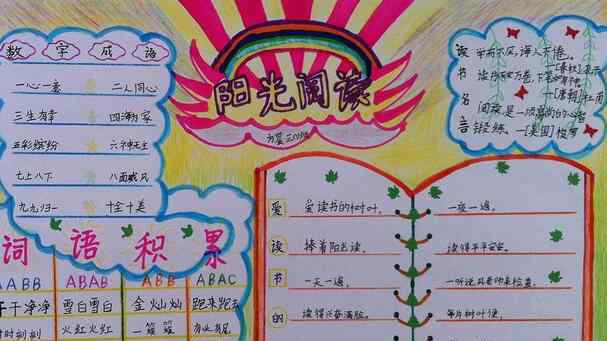 数字成语
一心一意 二人同心
三生有幸 四海为家
五彩缤纷 六神无主
七上八下 八面威风
九九归一 十全十美
阳光阅读
读书名言
学而不厌,诲人不倦。
读书破万卷,下笔如有神。
阅读是一项高尚的心智
锻练、—[美国]梭罗
词语积累
AABB ABAB ABB ABAC
干干净净 雪白雪白 金灿灿 跑来跑去
时时刻刻 火红火红 一簇簇 有始有尾
爱读书的
爱读书的树叶, 一夜一遍。
捧着阳光读, 读得平平安安。
一天一遍, 一听说风要功来检查,
读得兴奋满脸。 每片树叶便,